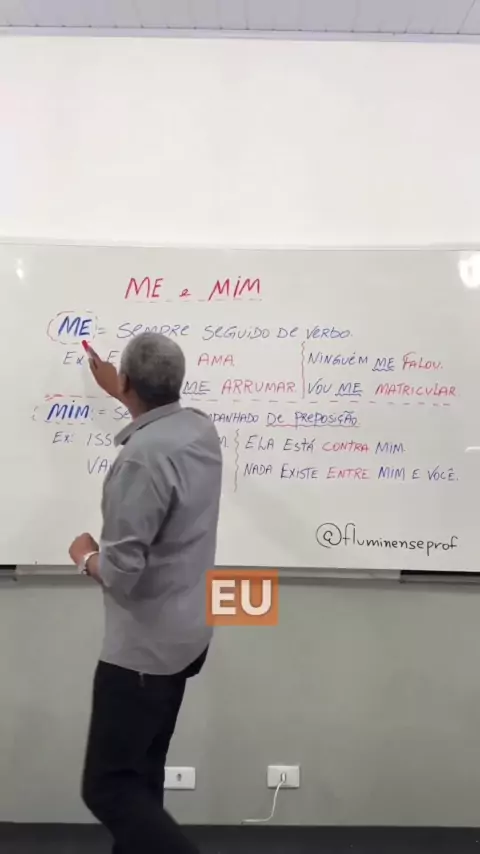 ME e MIM
ME = SEMPRE SEGUIDO DE VERBO.
Ex: AMA
NINGUÉM ME FALOU.
ME ARRUMAR
VOU ME MATRICULAR.
MIM = DE PREPOSIÇÃO
Ex: ISS
ELA ESTÁ CONTRA MIM
NADA EXISTE ENTRE MIM E VOCÊ.
@fluminenseprof
EU